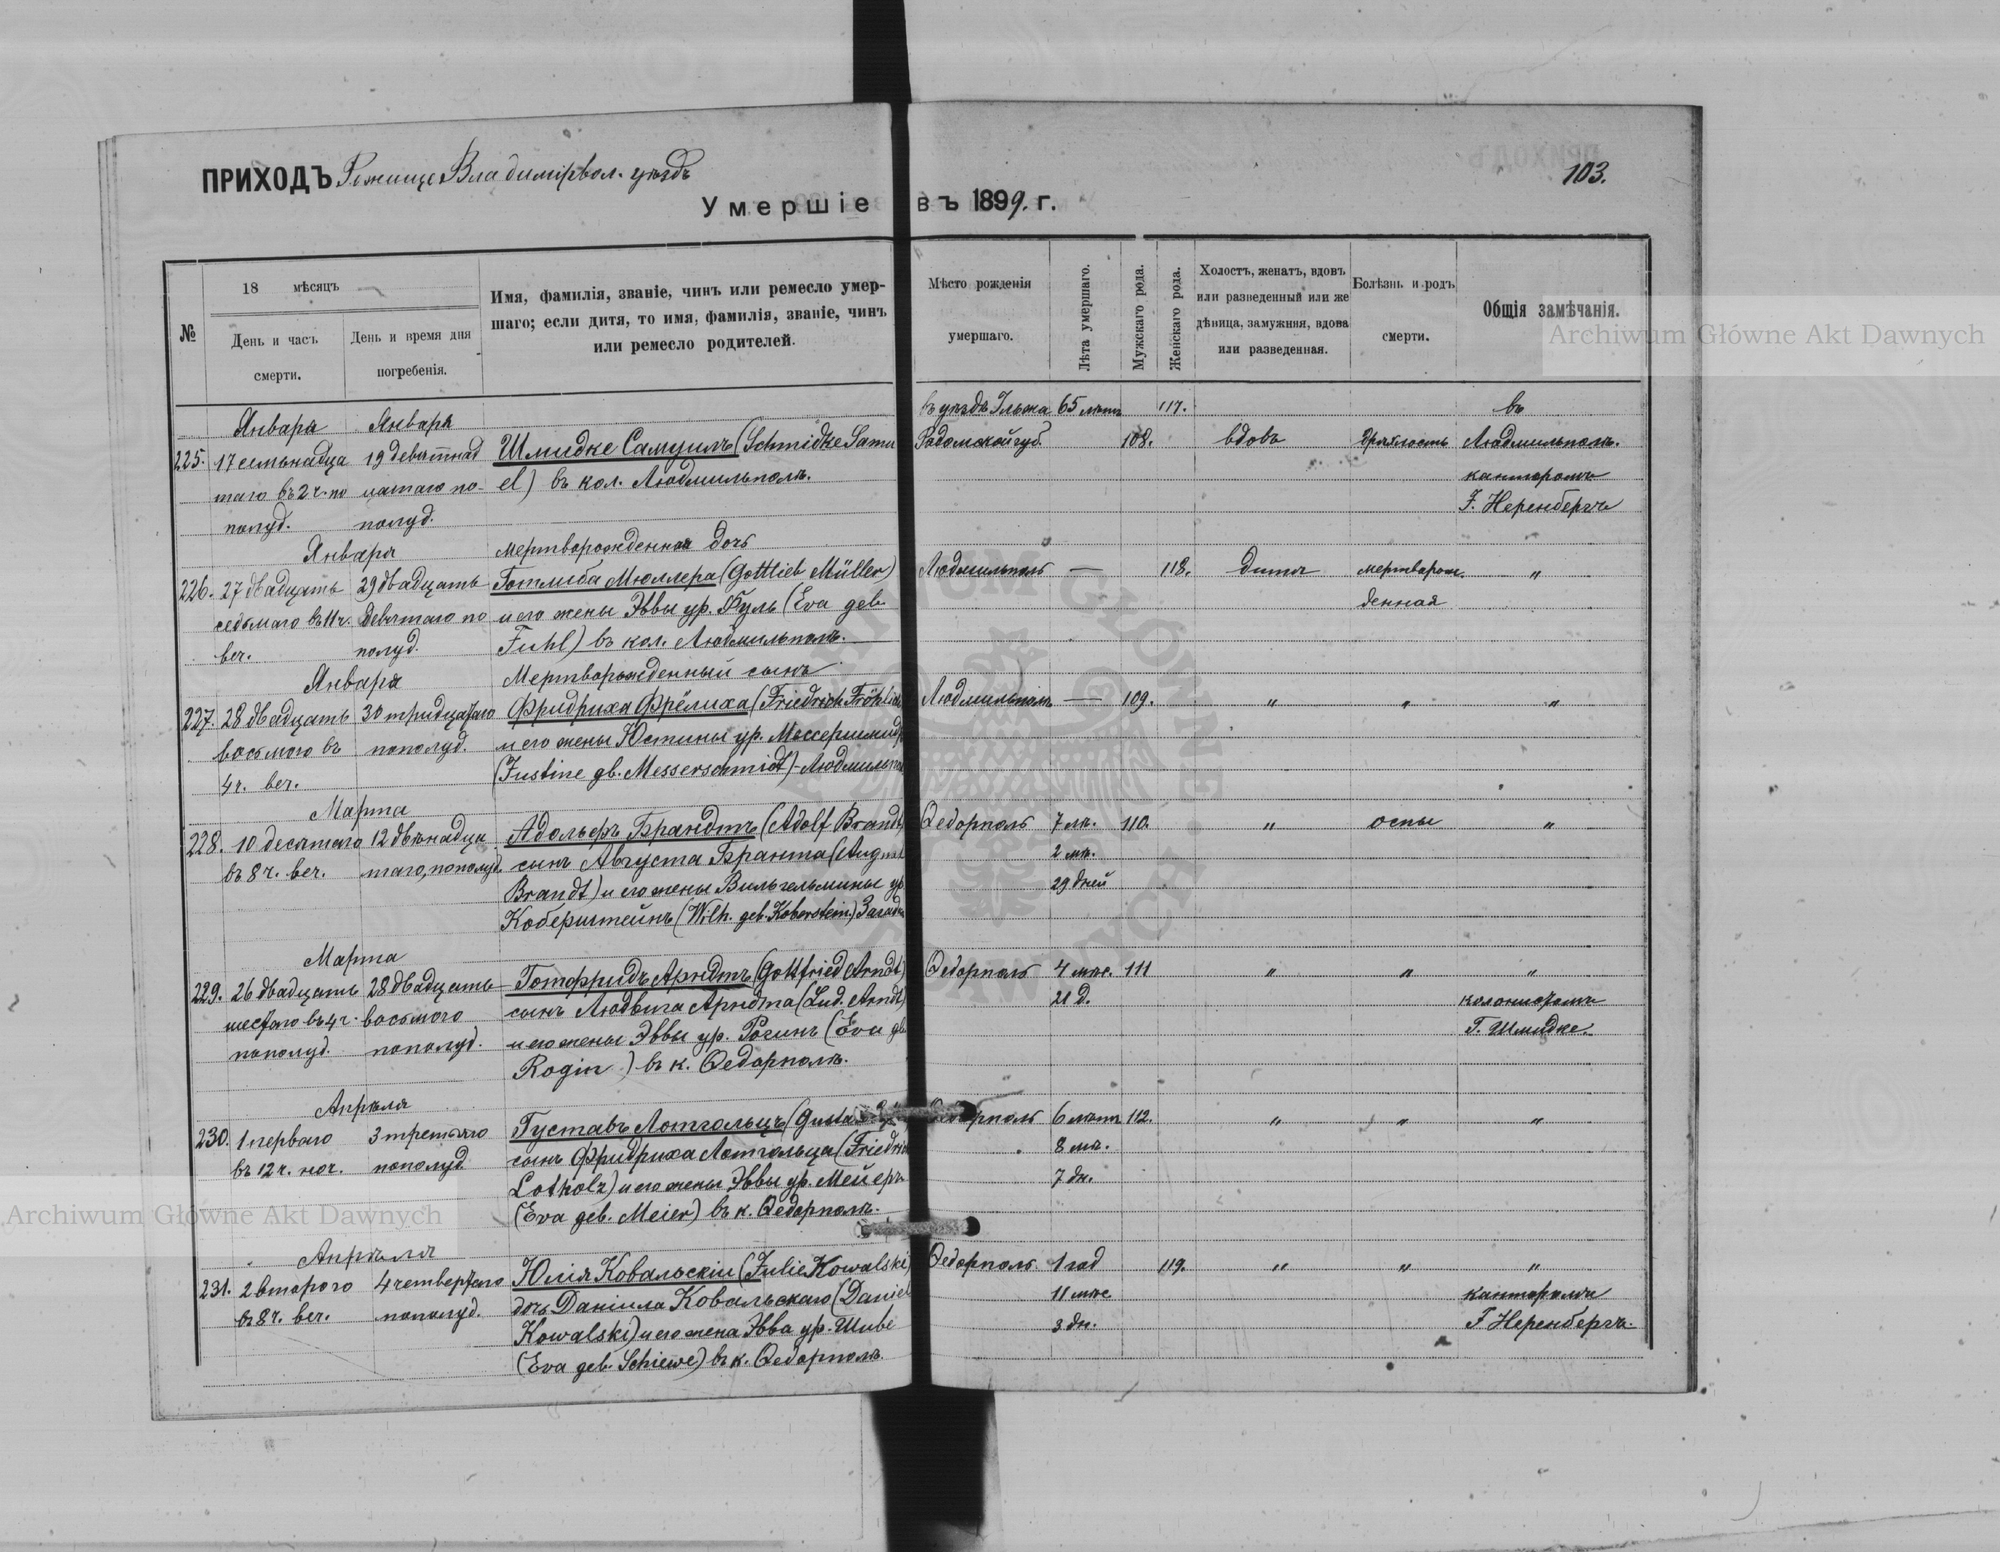 ПРИХОДЪ Рожище Владимірвол. уѣздъ
103.
Умершіе въ 1899. г.
№
18 мѣсяцъ
День и часъ смерти.
День и время дня погребенія.
Имя, фамилія, званіе, чинъ или ремесло умер-
шаго; если дитя, то имя, фамилія, званіе, чинъ
или ремесло родителей.
Мѣсто рожденія
умершаго.
Лѣта умершаго.
Мужскаго рода.
Женскаго рода.
Холостъ, женатъ, вдовъ
или разведенный или же
дѣвица, замужняя, вдова
или разведенная.
Болѣзнь и родъ
смерти.
Общія замѣчанія.
Archiwum Główne Akt Dawnych
Января Января въ уѣздѣ Ильжа 65 лѣтъ 117. въ
225. 17 семьнадца 19 девятнад Шмидке Самуилъ (Schmidke Samu Радомской губ. 108. вдовъ дряхлость Людмильполь.
таго въ 2 ч. по цатаго по- el) въ кол. Людмильполь. канторомъ
полуд. полуд. F. Неренбергъ
Января мертворожденная дочь
226. 27 двадцать 29 двадцать Готлиба Мюллера (Gottlieb Müller) Людмильполь — 118. дитя мертворож. "
седьмаго въ 11 ч. девятаго по и его жены Эввы ур. Фуль (Eva geb. денная
веч. полуд. Fuhl) въ кол. Людмильполь.
Января Мертворожденный сынъ
227. 28 двадцать 30 тридцатаго Фридриха Фрёлиха (Friedrich Fröhlich Людмильполь — 109. " " "
восьмого въ пополуд. и его жены Юстины ур. Мессершмидт
4 ч. веч. (Justine gb. Messerschmidt) - Людмильпол
Марта
228. 10 десятаго 12 двѣнадца Адольфъ Брандтъ (Adolf Brandt) Ѳедорполь 7 лѣ. 110. " оспы "
въ 8 ч. веч. таго, пополуд. сынъ Августа Бранта (August 2 мѣ.
Brandt) и его жены Вильгельмины ур. 29 дней
Коберштейнъ (Wilh. geb. Koberstein.)
Марта
229. 26 двадцать 28 двадцать Готфридъ Арндтъ (Gottfried Arndt) Ѳедорполь 4 мѣс. 111 " " "
шестого въ 4 ч. восьмого сынъ Людвига Арндта (Lud. Arndt) 21 д. колонистомъ
пополуд. пополуд. и его жены Эввы ур. Рогинъ (Eva gb. Г. Шмидке.
Rogin) въ к. Ѳедорполь.
Апрѣля
230. 1 перваго 3 третьяго Густавъ Лотгольцъ (Gustav Ѳедорполь 6 лѣтъ 112. " " "
въ 12 ч. ноч. пополуд. сынъ Фридриха Лотгольца (Friedrich 8 мѣ.
Lotholz) и его жены Эввы ур. Мейеръ 7 дн.
(Eva geb. Meier) въ к. Ѳедорполь.
Archiwum Główne Akt Dawnych
Апрѣля
231. 2 второго 4 четвертаго Юлія Ковальскіи (Julie Kowalski) Ѳедорполь 1 год 119. " " "
въ 8 ч. веч. пополуд. дочь Даніила Ковальскаго (Daniel 11 мѣс канторомъ
Kowalski) и его жена Эвва ур. Шиве 3 дн. F Неренбергъ.
(Eva geb. Schiewe) въ к. Ѳедорполь.